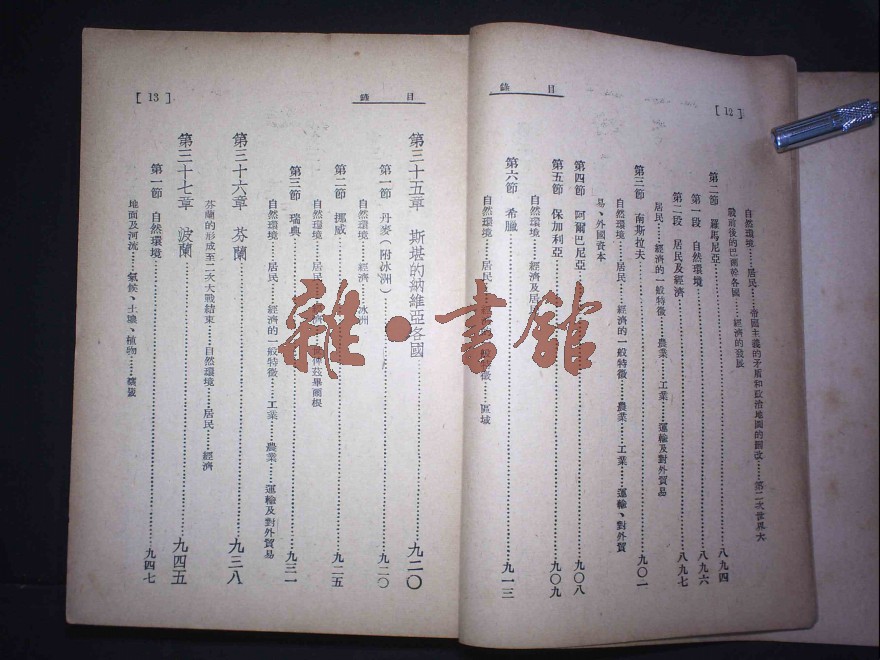 目錄
[12]
自然環境……居民……帝國主義的矛盾和政治地圖的圖改……第二次世界大
戰前後的巴爾幹各國……經濟的發展
第二節 羅馬尼亞……八九四
第一段 自然環境……八九六
第二段 居民及經濟……八九七
居民……經濟的一般特徵……農業……工業……運輸及對外貿易
第三節 南斯拉夫……九〇一
自然環境……居民……經濟的一般特徵……農業……工業……運輸、對外貿
易、外國資本
第四節 阿爾巴尼亞……九〇八
第五節 保加利亞……九〇九
自然環境……經濟及居民
第六節 希臘……九一三
自然環境……居民……特徵……區域
目錄
[13]
第三十五章 斯堪的納維亞各國……九二〇
第一節 丹麥(附冰洲)……九二〇
自然環境……經濟……冰洲
第二節 挪威……九二五
自然環境……居民……茲畢爾根
第三節 瑞典……九三一
自然環境……居民……經濟的一般特徵……工業……農業……運輸及對外貿易
第三十六章 芬蘭……九三八
芬蘭的形成至二次大戰結束……自然環境……居民……經濟
第三十七章 波蘭……九四五
第一節 自然環境……九四七
地面及河流……氣候、土壤、植物……礦藏
雜·書館